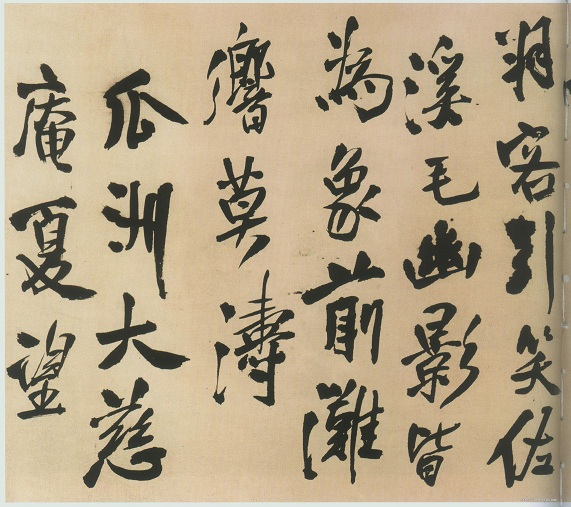 客引笑佐
溪毛幽影皆
為象前灘
響莫濤
瓜洲大慈
庵夏望